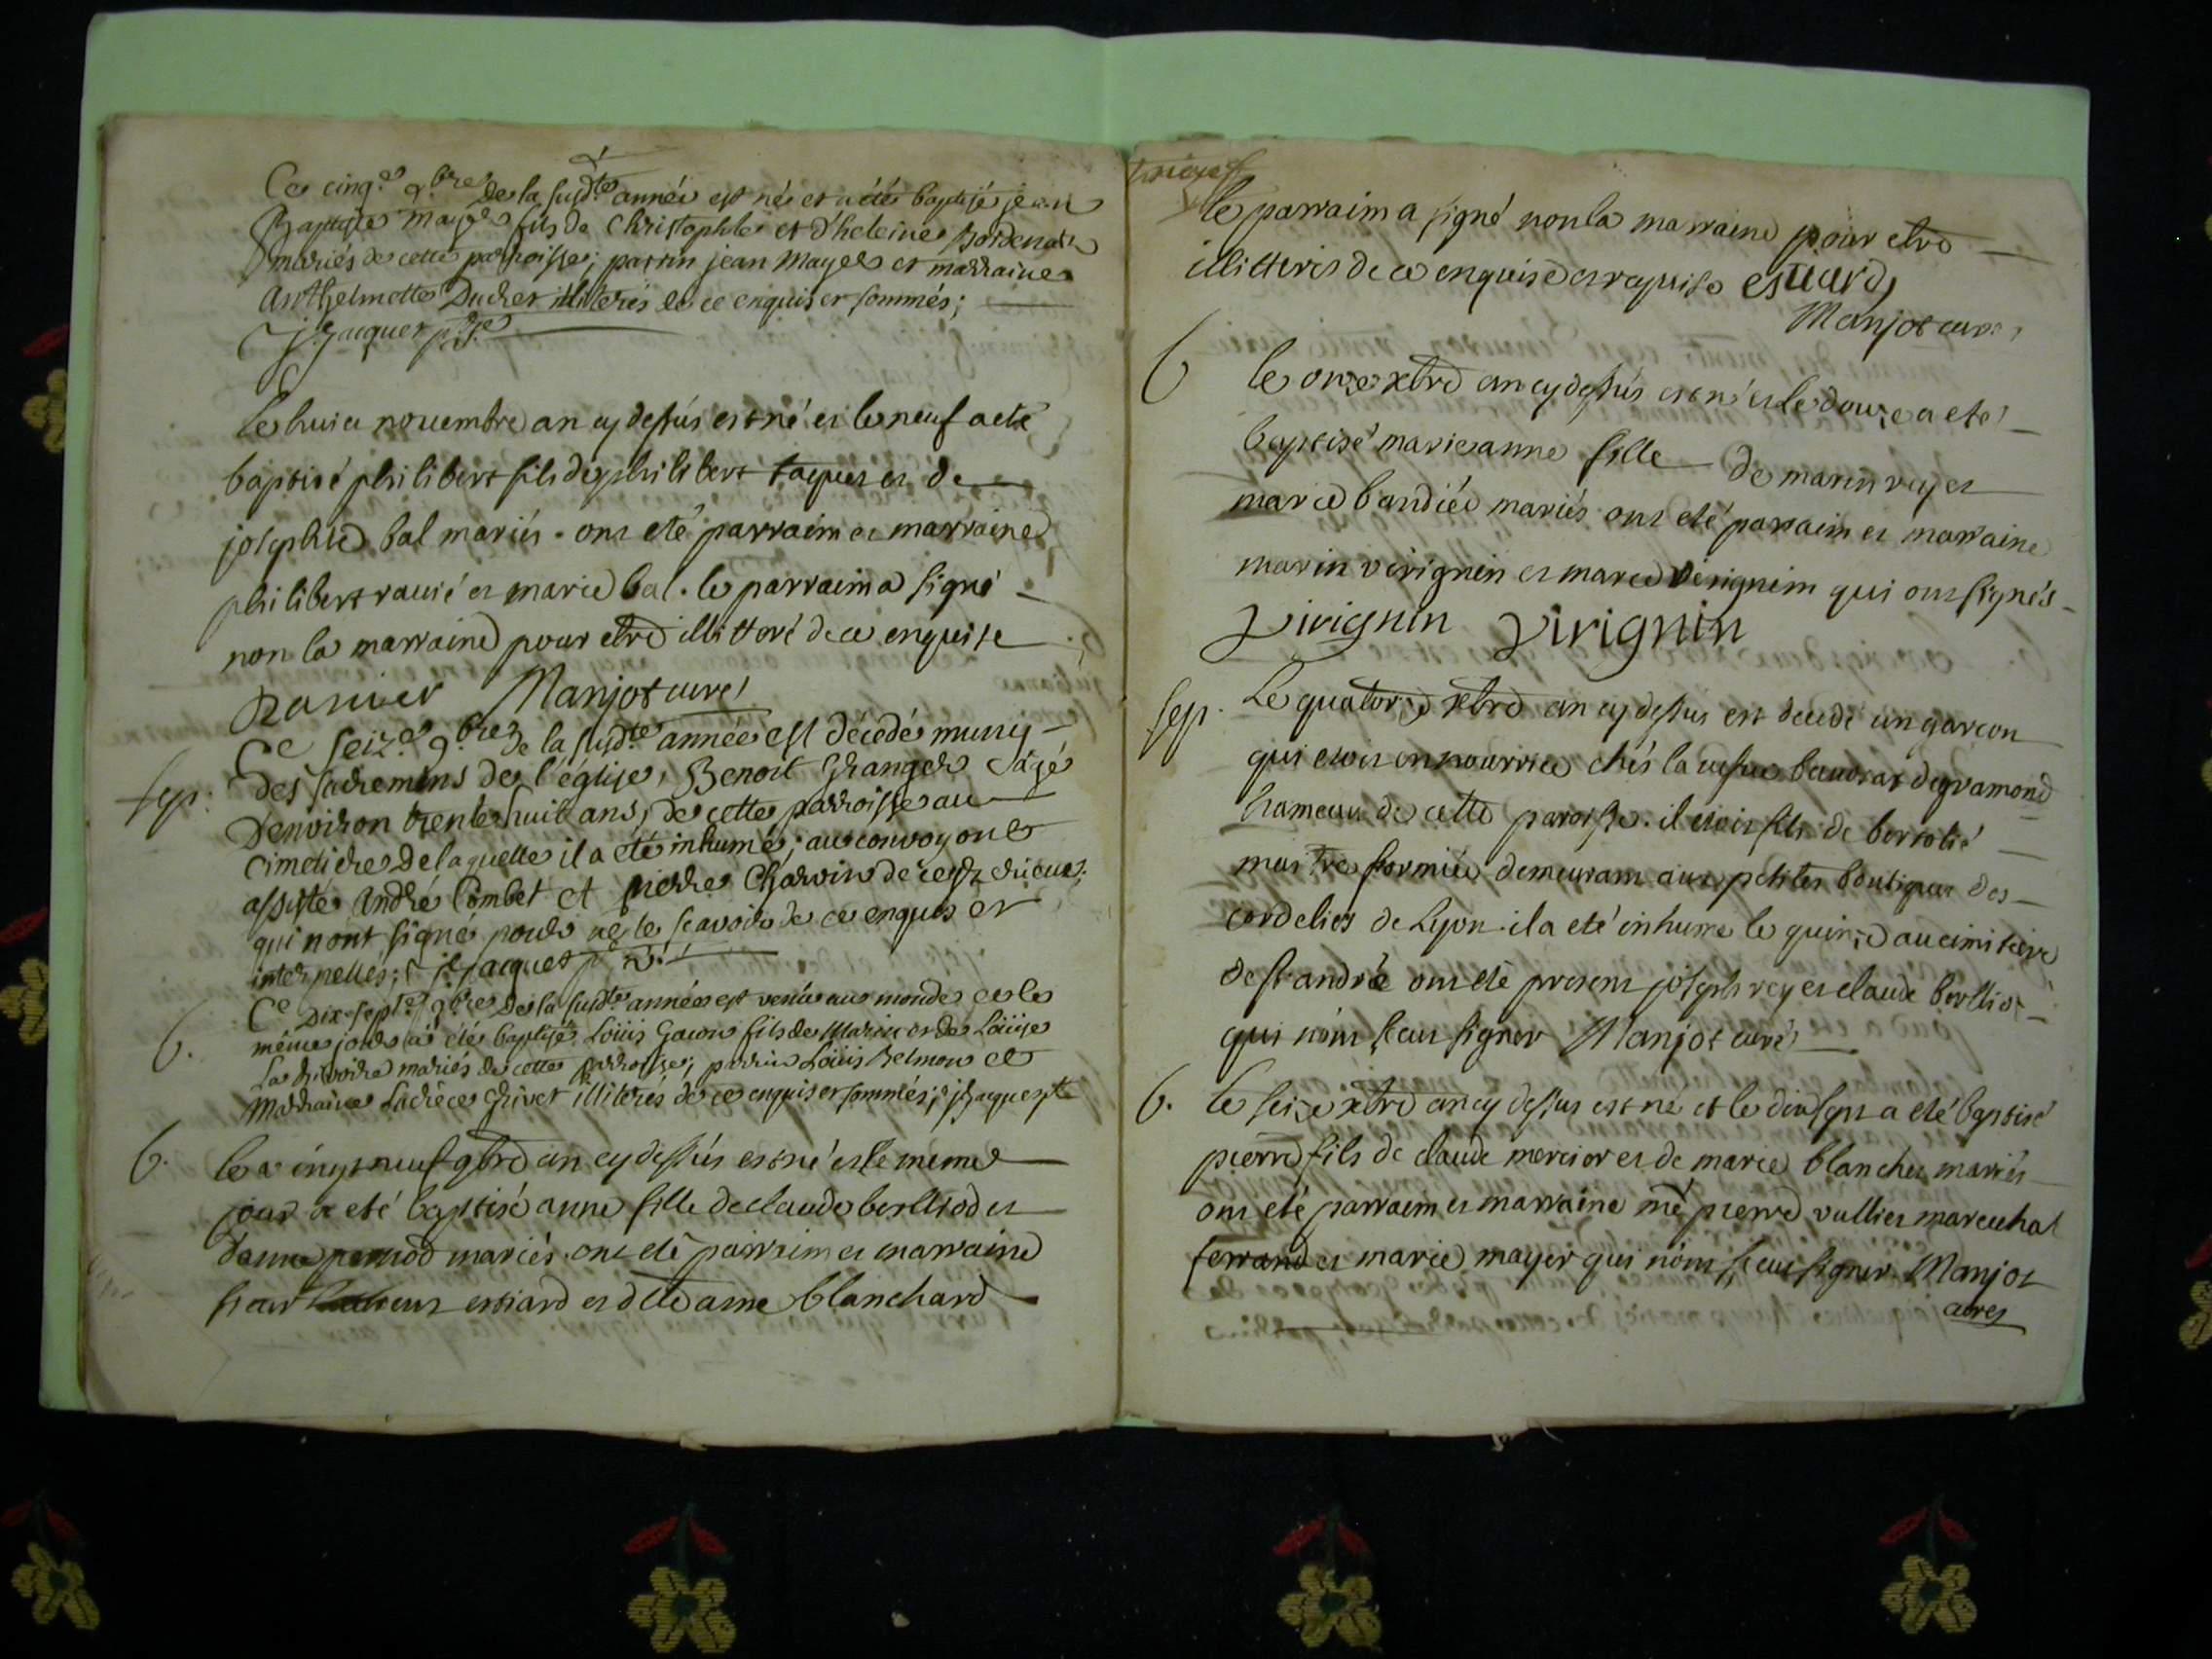 Ce cinq.e 9.bre de la susd.te année est né et a été baptisé jean
Baptiste mayer fils de Christophle et d'heleine
mariés de cette parroisse; parrin jean Mayer et marraine
Anthelmette Ducher illiterés de ce enquis et sommés;
J. jacquet p.tre
le huict novembre an cy dessús est né et le neuf a eté
baptisé philibert fils de philibert taques et de
josephte bal mariés. ont eté parraim et marraine
philibert ravié et marie bal. le parraim a signé
non la marraine pour etre illitteré de ce enquise
Ravier Manjot curé
Ce seiz.e 9.bre de la susd.te année est décédé muny
Sep: des sacremens de l'église, Benoit Granger agé
D'environ trente huit ans, de cette parroisse au
Cimetiere De laquelle il a été inhumé; au convoy ont
assisté André Combet et pierre Charvin de
qui n'ont signé pour ne le sçavoir de ce enquis et
interpellés; j. jacquet p.
Ce Dix-sept.e 9.bre De la susd.te année est venu au monde et le
B. même jour a été baptisé Loüis Gacon fils de Marin et de Loüise
La rivoire mariés de cette parroisse; parrin Loüis Belmon et
Marraine Lucrèce Grivet illiterés de ce enquis et sommés; j. jacquet p.te
B. le vingt neuf 9bre an cy dessús est né et le meme
jour a eté baptisé anne fille de claude berlliod et
d'anne pernod mariés. ont eté parraim et marraine
sieur essiard et dlle anne blanchard
le parraim a signé non la marraine pour etre
illitteres de ce enquise et requise essuard
Manjot curé
B le onze xbre an cy dessús est né et le douze a eté
baptisé marie anne fille de marin rey et
marie bandiée mariés ont eté parraim et marraine
marin virignin et marie virignim qui ont signés
Virignin Virignin
Sep. Le quatorze xbre an cy dessus est decedé un garcon
qui etoit en nourrice chés la veuve baudrat de gramond
hameau de cette paroisse. il etoit fils de bertolié
maitre formiée demeurant aux petites boutiques des
cordeliers de Lyon. il a eté inhumé le quinze au cimitiere
de st andré ont eté presens joseph rey et claude berlliot
qui n'ont sceu signer Manjot curé
B. le seize xbre an cy dessus est né et le dix sept a eté baptisé
pierre fils de claude mercier et de marie blanchet mariés
ont eté parraim et marraine me pierre vullier marechal
ferrand et marie mayer qui n'ont sceu signer. Manjot
curé